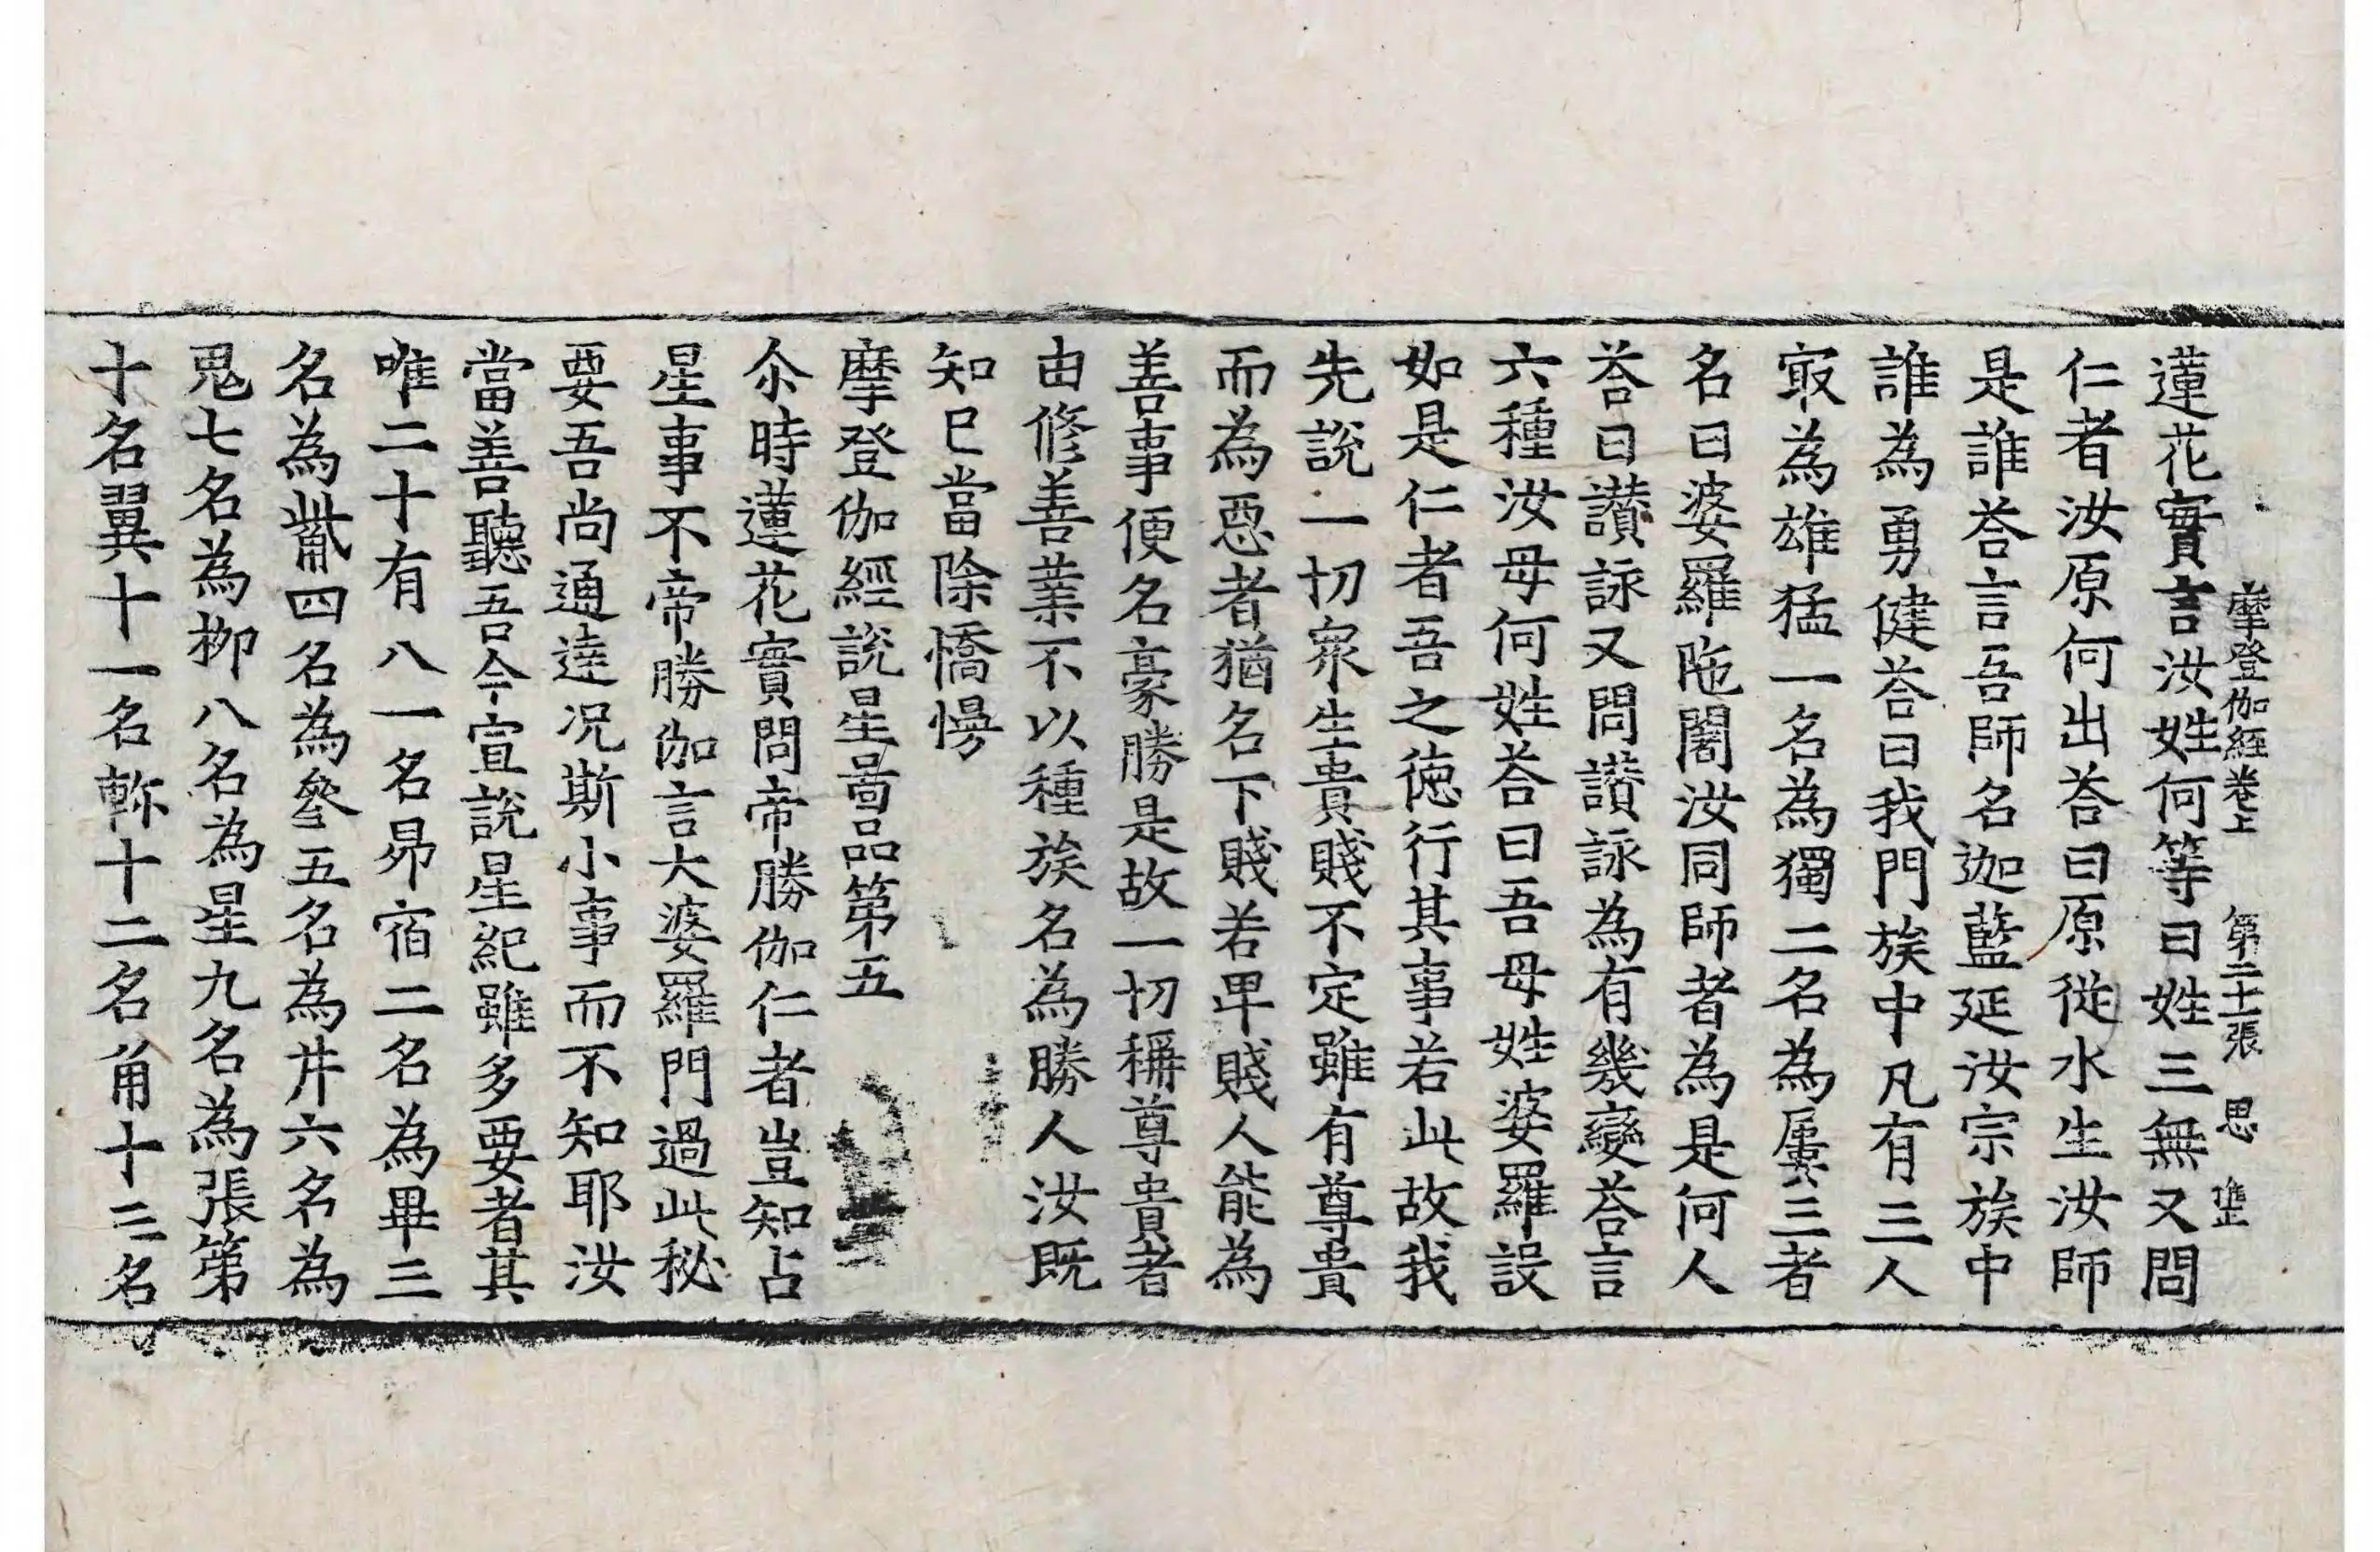 摩登伽經卷上　第二十張　思
蓮花實言汝姓何等曰姓三無又問
仁者汝原何出荅曰原從水生汝師
是誰荅言吾師名迦藍延汝宗族中
誰為勇健荅曰我門族中凡有三人
㝡為雄猛一名為獨二名為屢三者
名曰婆羅陁闍汝同師者為是何人
荅曰讃詠又問讃詠為有幾變荅言
六種汝母何姓荅曰吾母姓婆羅設
如是仁者吾之徳行其事若此故我
先說一切衆生貴賤不定雖有尊貴
而為惡者猶名下賤若卑賤人能為
善事便名豪勝是故一切稱尊貴者
由修善業不以種族名為勝人汝既
知巳當除憍慢
摩登伽經說星啚品第五
尒時蓮花實問帝勝伽仁者豈知占
星事不帝勝伽言大婆羅門過此秘
要吾尚通達况斯小事而不知耶汝
當善聽吾今宣說星紀雖多要者其
唯二十有八一名昴宿二名為畢三
名為觜四名為參五名為井六名為
鬼七名為柳八名為星九名為張第
十名翼十一名軫十二名角十三名